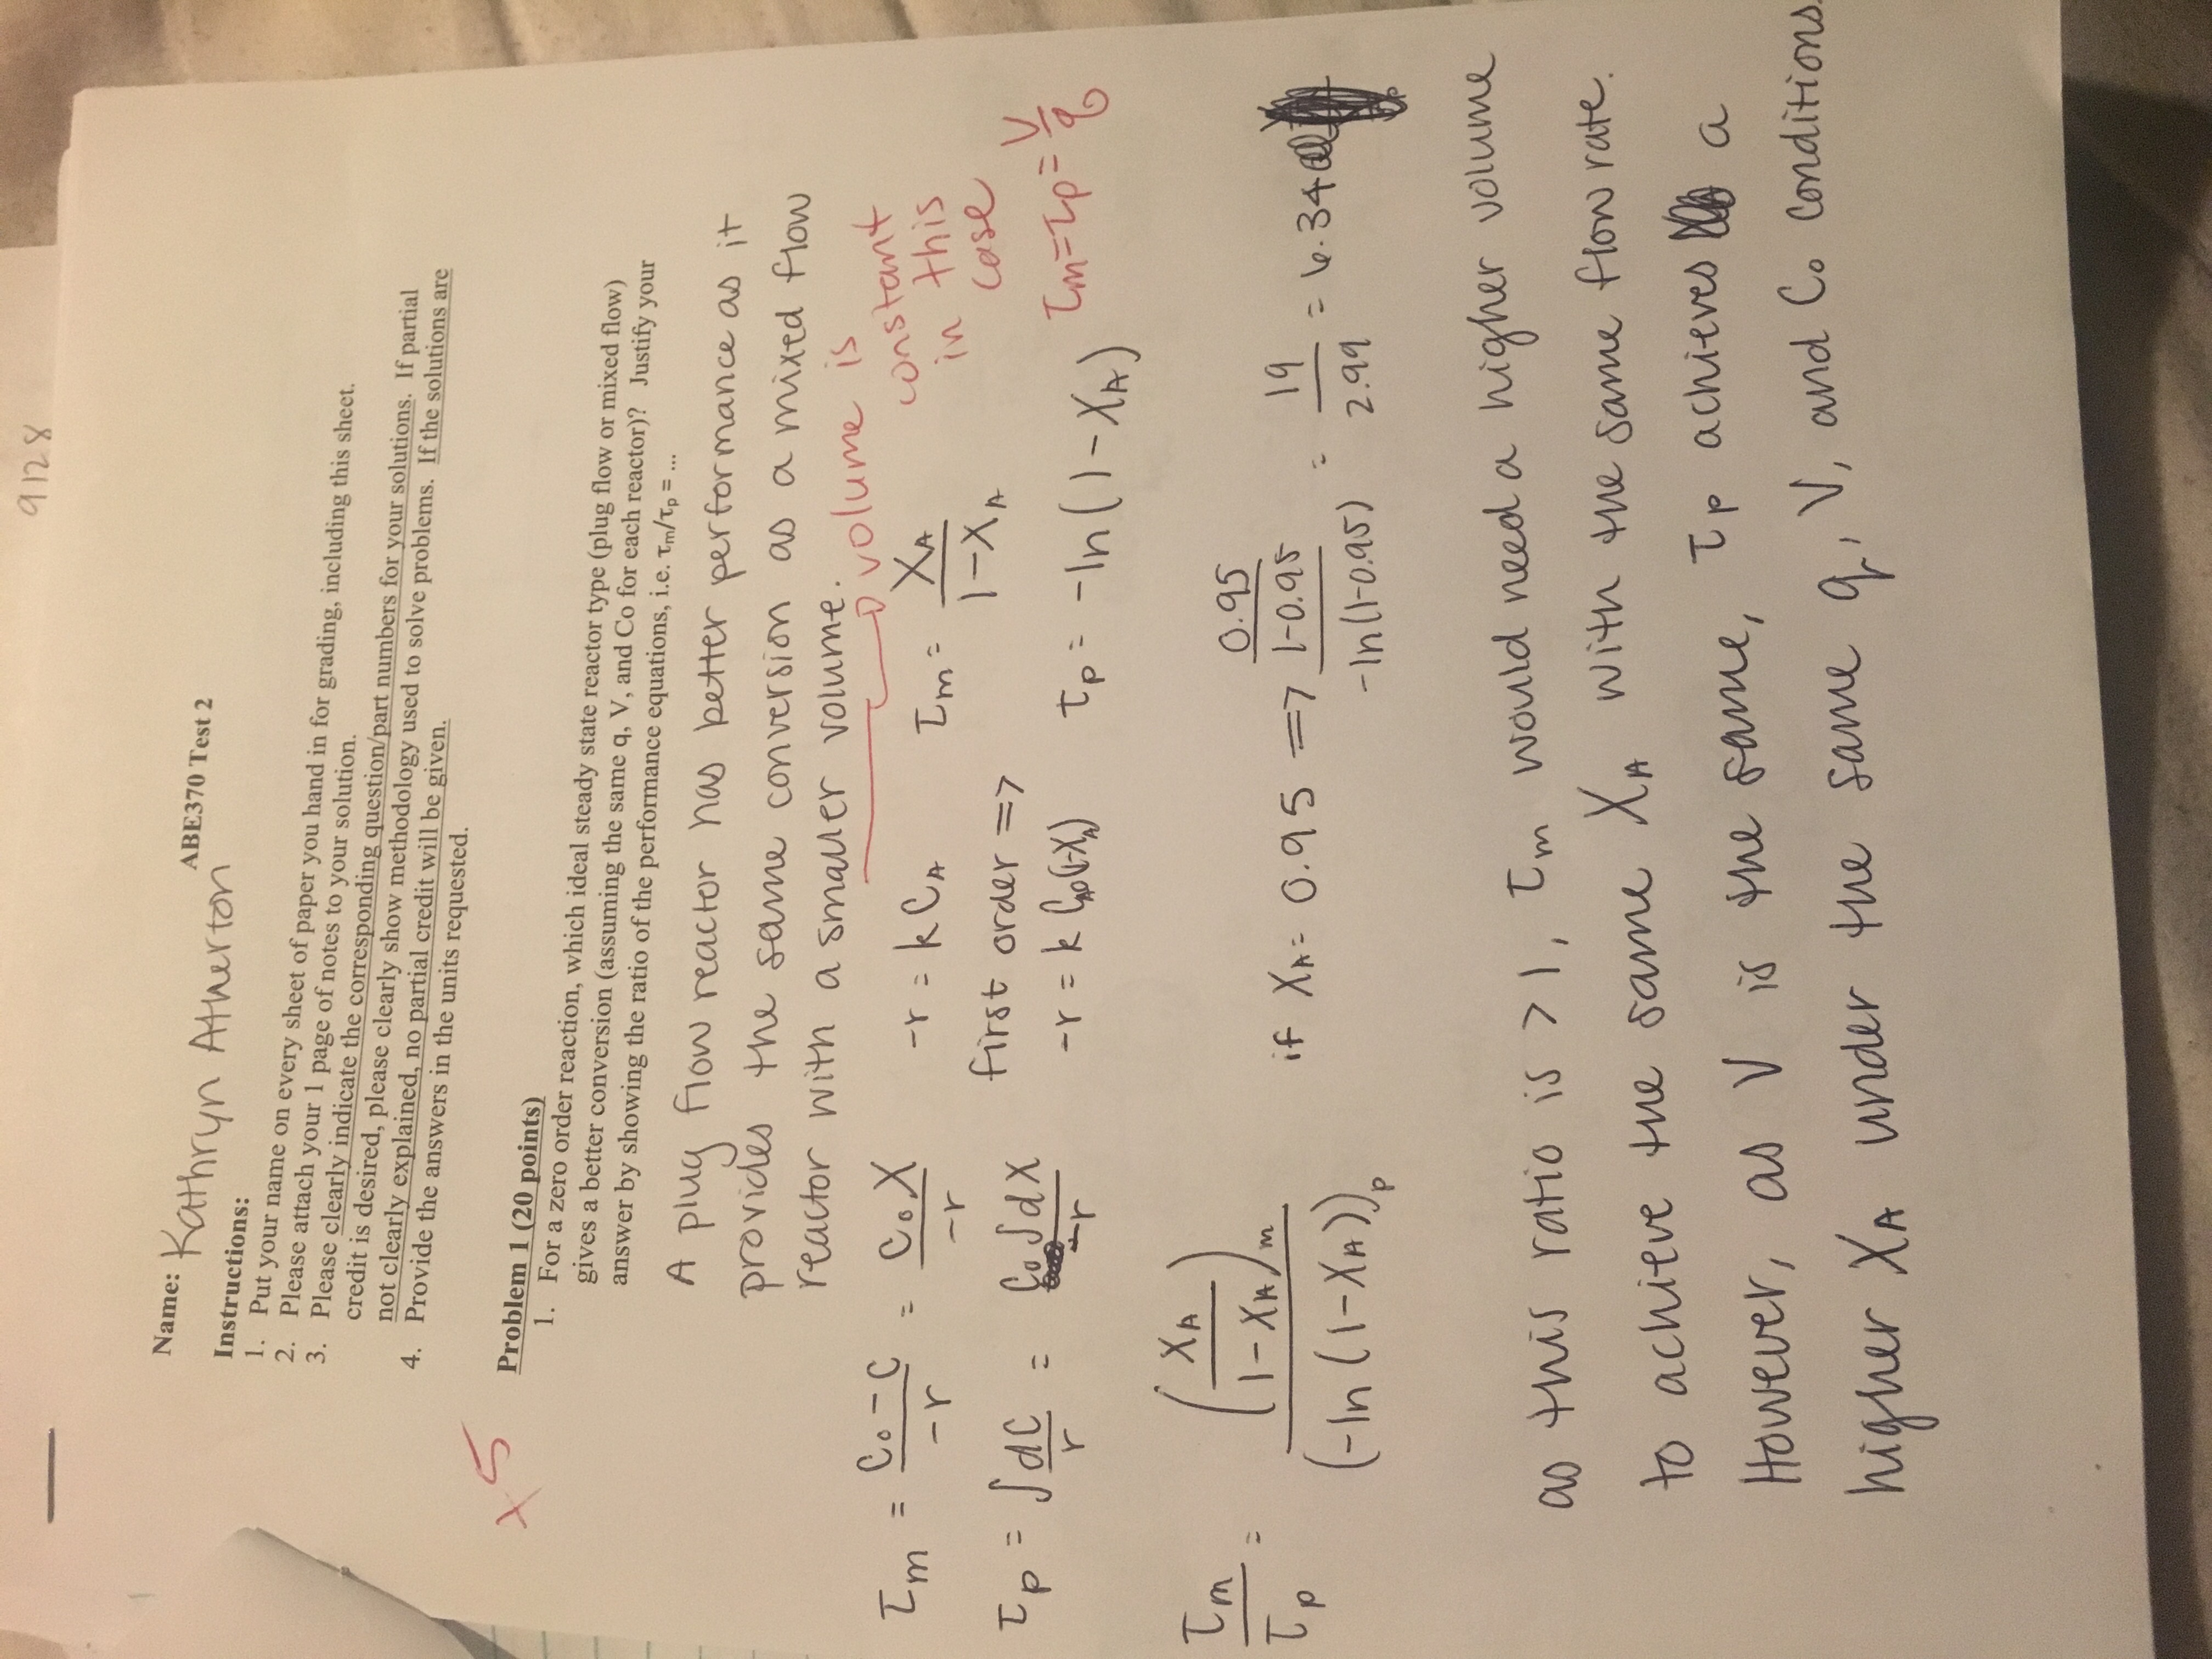 9128
Name: Kathryn Atherton
ABE370 Test 2
Instructions:
1. Put your name on every sheet of paper you hand in for grading, including this sheet.
2. Please attach your 1 page of notes to your solution.
3. Please clearly indicate the corresponding question/part numbers for your solutions. If partial
credit is desired, please clearly show methodology used to solve problems. If the solutions are
not clearly explained, no partial credit will be given.
4. Provide the answers in the units requested.
+5
Problem 1 (20 points)
1. For a zero order reaction, which ideal steady state reactor type (plug flow or mixed flow)
gives a better conversion (assuming the same q, V, and Co for each reactor)? Justify your
answer by showing the ratio of the performance equations, i.e. τm/τp = ...
A plug flow reactor has better performance as it
provides the same conversion as a mixed flow
reactor with a smaller volume.
→ volume is
constant
in this
case
τm = (C₀-C)/(-r) = C₀X/(-r)
-r = kC_A
τm = X_A/(1-X_A)
first order =>
τp = ∫dC/r = C₀∫dX/(-r)
-r = k C_A0(1-X_A)
τp = -ln(1-X_A)
τm=τp=V/q
τm/τp = (X_A/(1-X_A))m/(-ln(1-X_A))p
if X_A = 0.95 => (0.95/(1-0.95))/(-ln(1-0.95)) = 19/2.99 = 6.34
as this ratio is >1, τm would need a higher volume
to achieve the same X_A with the same flow rate.
However, as V is the same, τp achieves a
higher X_A under the same q, V, and C₀ conditions.